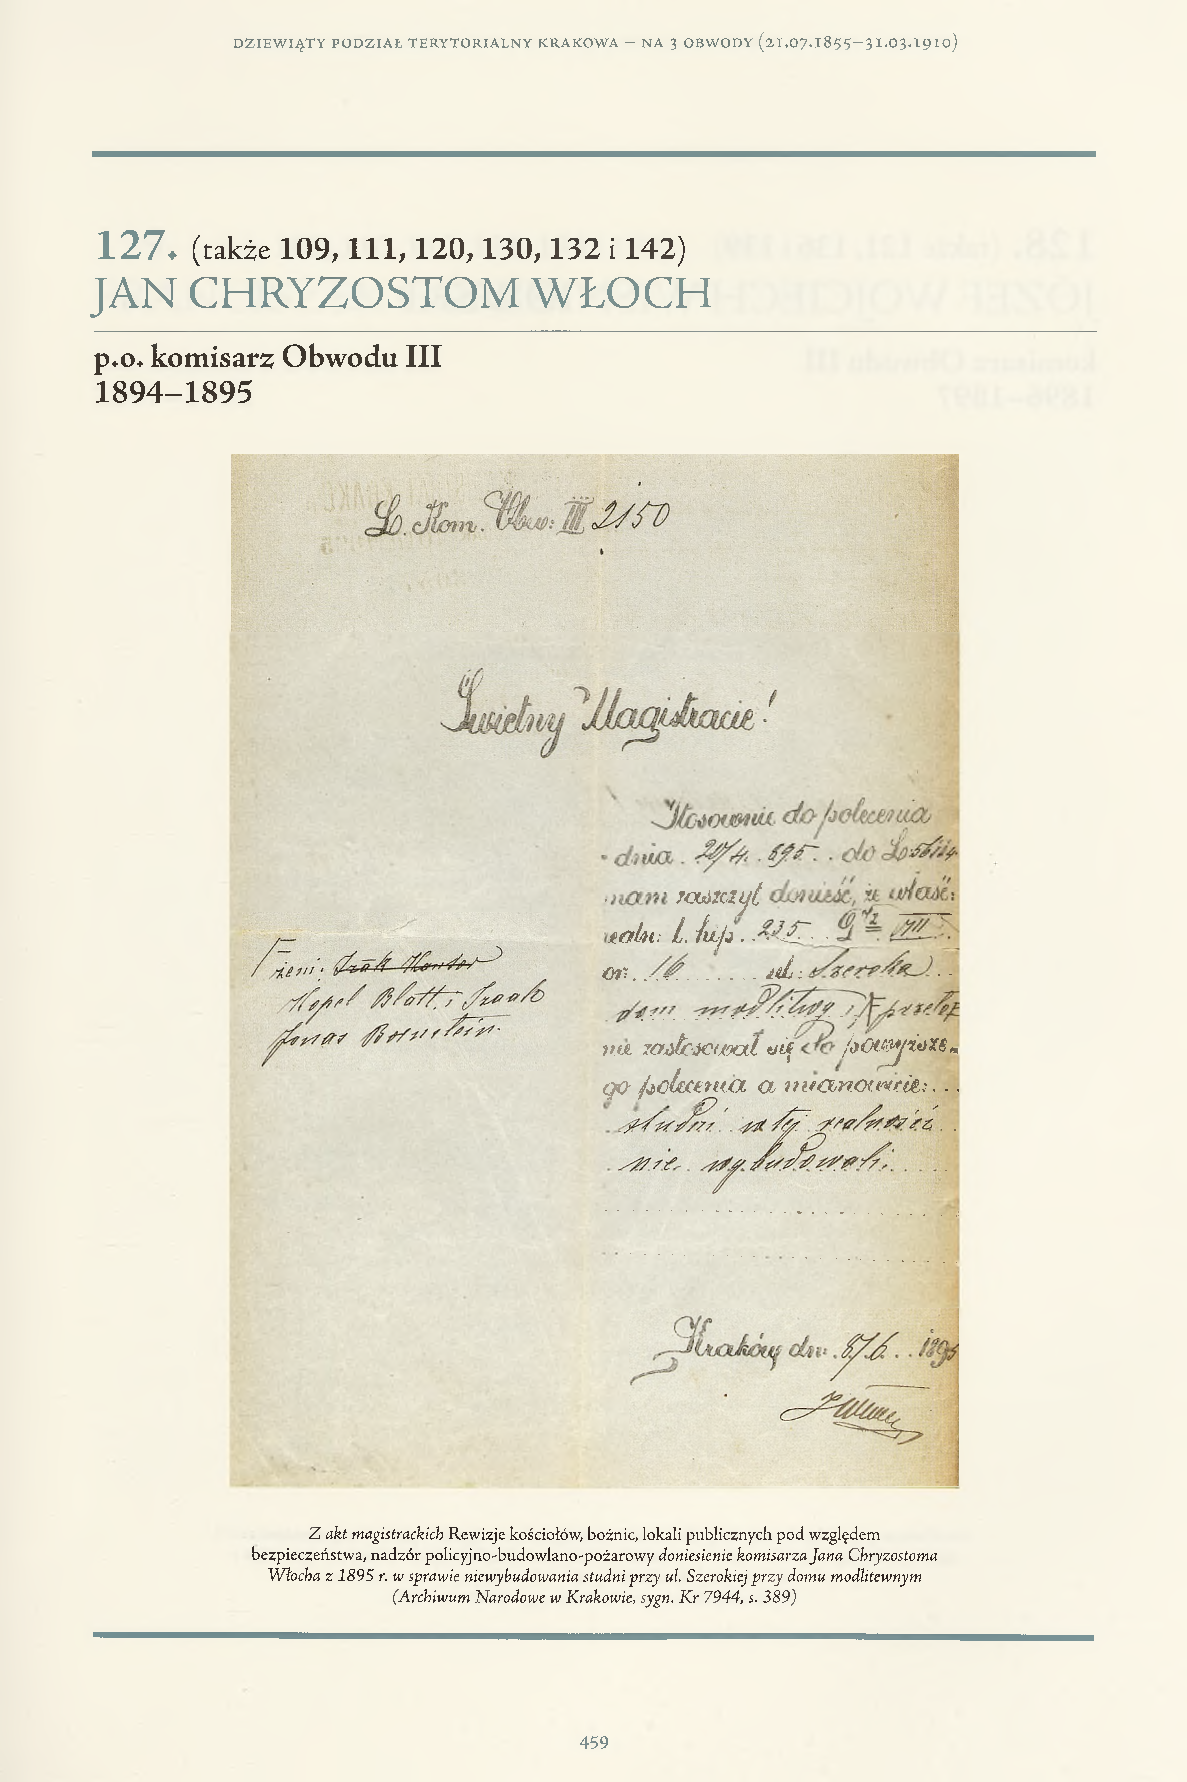 DZIEWIĄTY PODZIAŁ TERYTORIALNY KRAKOWA – NA 3 OBWODY (21.07.1855–31.03.1910)
127. (także 109, 111, 120, 130, 132 i 142)
JAN CHRYZOSTOM WŁOCH
p.o. komisarz Obwodu III
1894–1895
L. Kom. Obw: III 2150
Świetny Magistracie!
Stosownie do polecenia
dnia 20/4. 895. do L.
mam zaszczyt donieść, że właś:
realn: L. hip. 235. Dz VIII
or. 16 ul: Szeroka
dom modlitwy przełoż
nie zastosował się do powyższe-
go polecenia a mianowicie:
studni w tej realności
nie wybudowali.
żeni: Izak Kantor
Kopel Blatt, i Izaak
Jonas Bornstein.
Kraków dn: 8/6. 1895
Z akt magistrackich Rewizje kościołów, bożnic, lokali publicznych pod względem
bezpieczeństwa, nadzór policyjno-budowlano-pożarowy doniesienie komisarza Jana Chryzostoma
Włocha z 1895 r. w sprawie niewybudowania studni przy ul. Szerokiej przy domu modlitewnym
(Archiwum Narodowe w Krakowie, sygn. Kr 7944, s. 389)
459